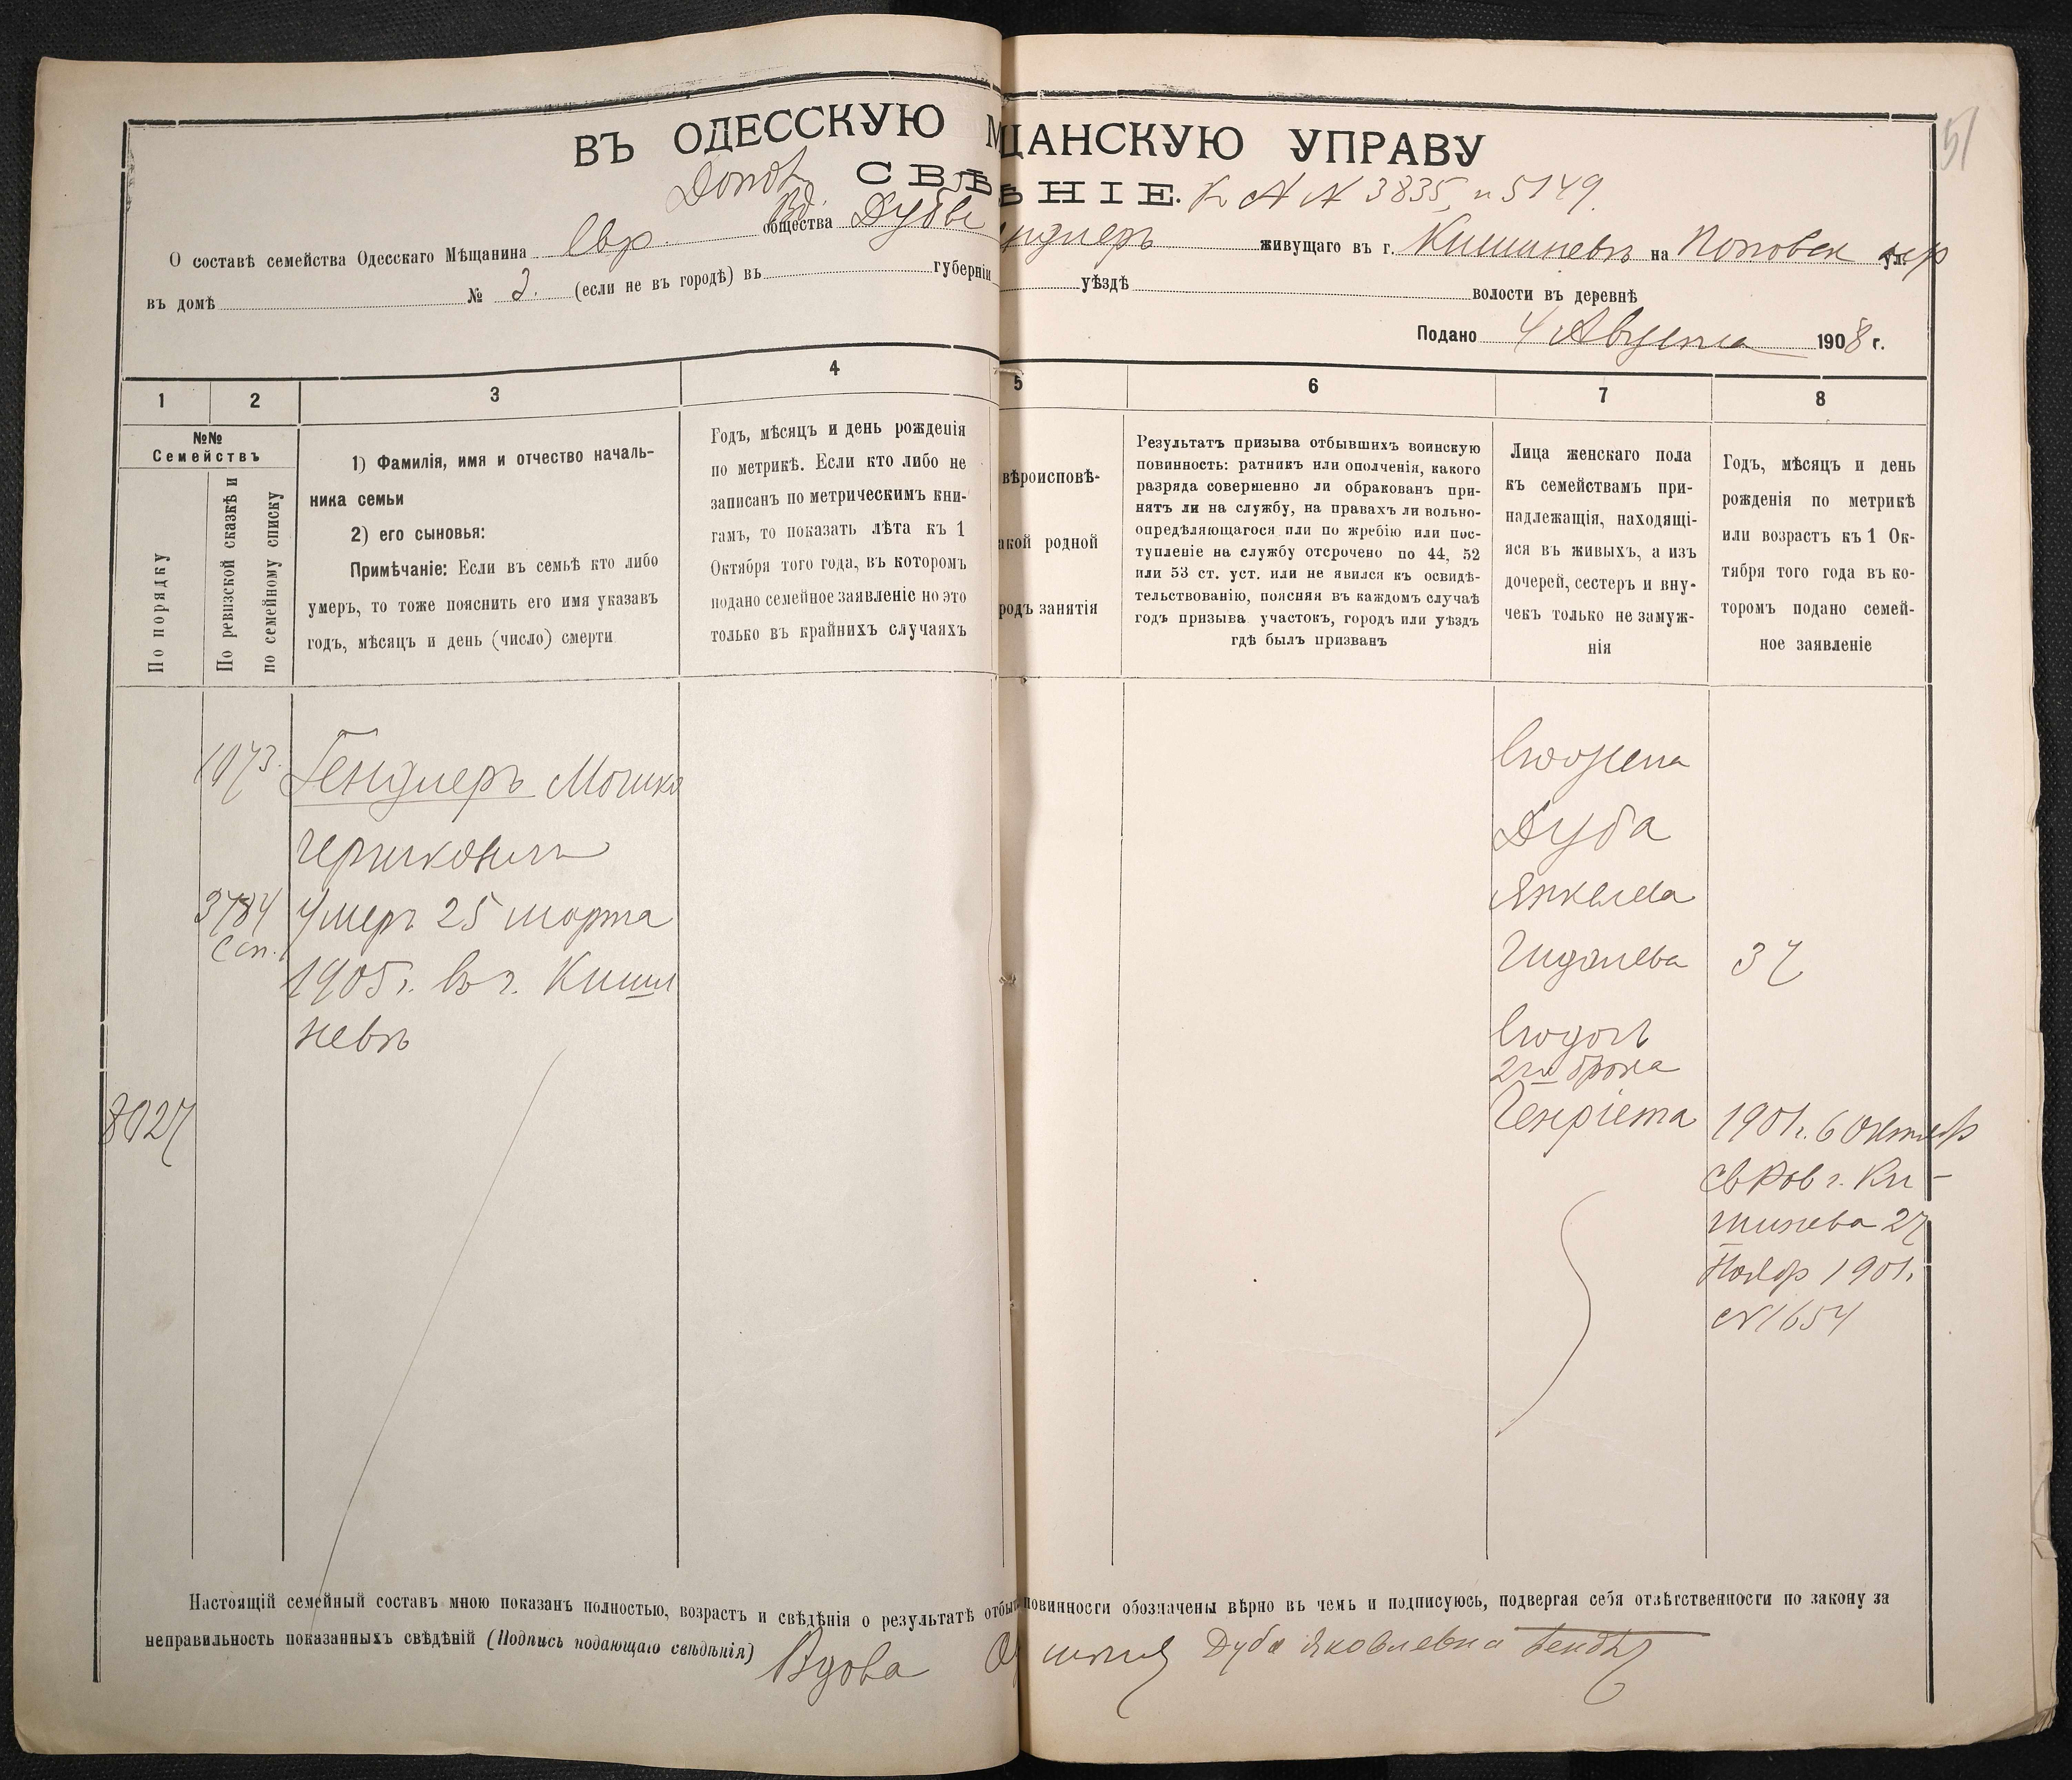 ВЪ ОДЕССКУЮ МЩАНСКУЮ УПРАВУ
51
СВѢ ѢНІЕ. К № № 3835, и 5149.
О составѣ семейства Одесскаго Мѣщанина Евр. общества Вд. Дубы ндлеръ живущаго въ г. Кишиневъ на Поповск ул.
въ домѣ № 2. (если не въ городѣ) въ губерніи уѣздѣ волости въ деревнѣ
Подано 4 Августа 1908 г.
1 2 3 4 5 6 7 8
№№
Семействъ
По порядку
По ревизской сказкѣ и
по семейному списку
1) Фамилія, имя и отчество началь-
ника семьи
2) его сыновья:
Примѣчаніе: Если въ семьѣ кто либо
умеръ, то тоже пояснить его имя указавъ
годъ, мѣсяцъ и день (число) смерти
Годъ, мѣсяцъ и день рожденія
по метрикѣ. Если кто либо не
записанъ по метрическимъ кни-
гамъ, то показать лѣта къ 1
Октября того года, въ которомъ
подано семейное заявленіе но это
только въ крайнихъ случаяхъ
вѣроисповѣ-
акой родной
родъ занятія
Результатъ призыва отбывшихъ воинскую
повинность: ратникъ или ополченія, какого
разряда совершенно ли обракованъ при-
нятъ ли на службу, на правахъ ли вольно-
опредѣляющагося или по жребію или пос-
тупленіе на службу отсрочено по 44, 52
или 53 ст. уст. или не явился къ освидѣ-
тельствованію, поясняя въ каждомъ случаѣ
годъ призыва участокъ, городъ или уѣздъ
гдѣ былъ призванъ
Лица женскаго пола
къ семействамъ при-
надлежащія, находящі-
яся въ живыхъ, а изъ
дочерей, сестеръ и вну-
чекъ только не замуж-
нія
Годъ, мѣсяцъ и день
рожденія по метрикѣ
или возрастъ къ 1 Ок-
тября того года въ ко-
торомъ подано семей-
ное заявленіе
1073.
Гендлеръ Мошко
Гершковичъ
3784
Сп.
Умеръ 25 марта
1905 г. въ г. Киши
невъ
8027
Его жена
Дуба
Янкелева
Гидалева
37
Его дочь
2го брака
Генріета
1901 г. 6 Октябр
Св Рав г. Ки-
шинева 27
Ноябр 1901.
№ 1654
Настоящій семейный составъ мною показанъ полностью, возрастъ и свѣдѣнія о результатѣ отбы повинности обозначены вѣрно въ чемъ и подписуюсь, подвергая себя отвѣтственности по закону за
неправильность показанныхъ свѣдѣній (Подпись подающаго свѣдѣнія)
Вдова Дуба Яковлевна